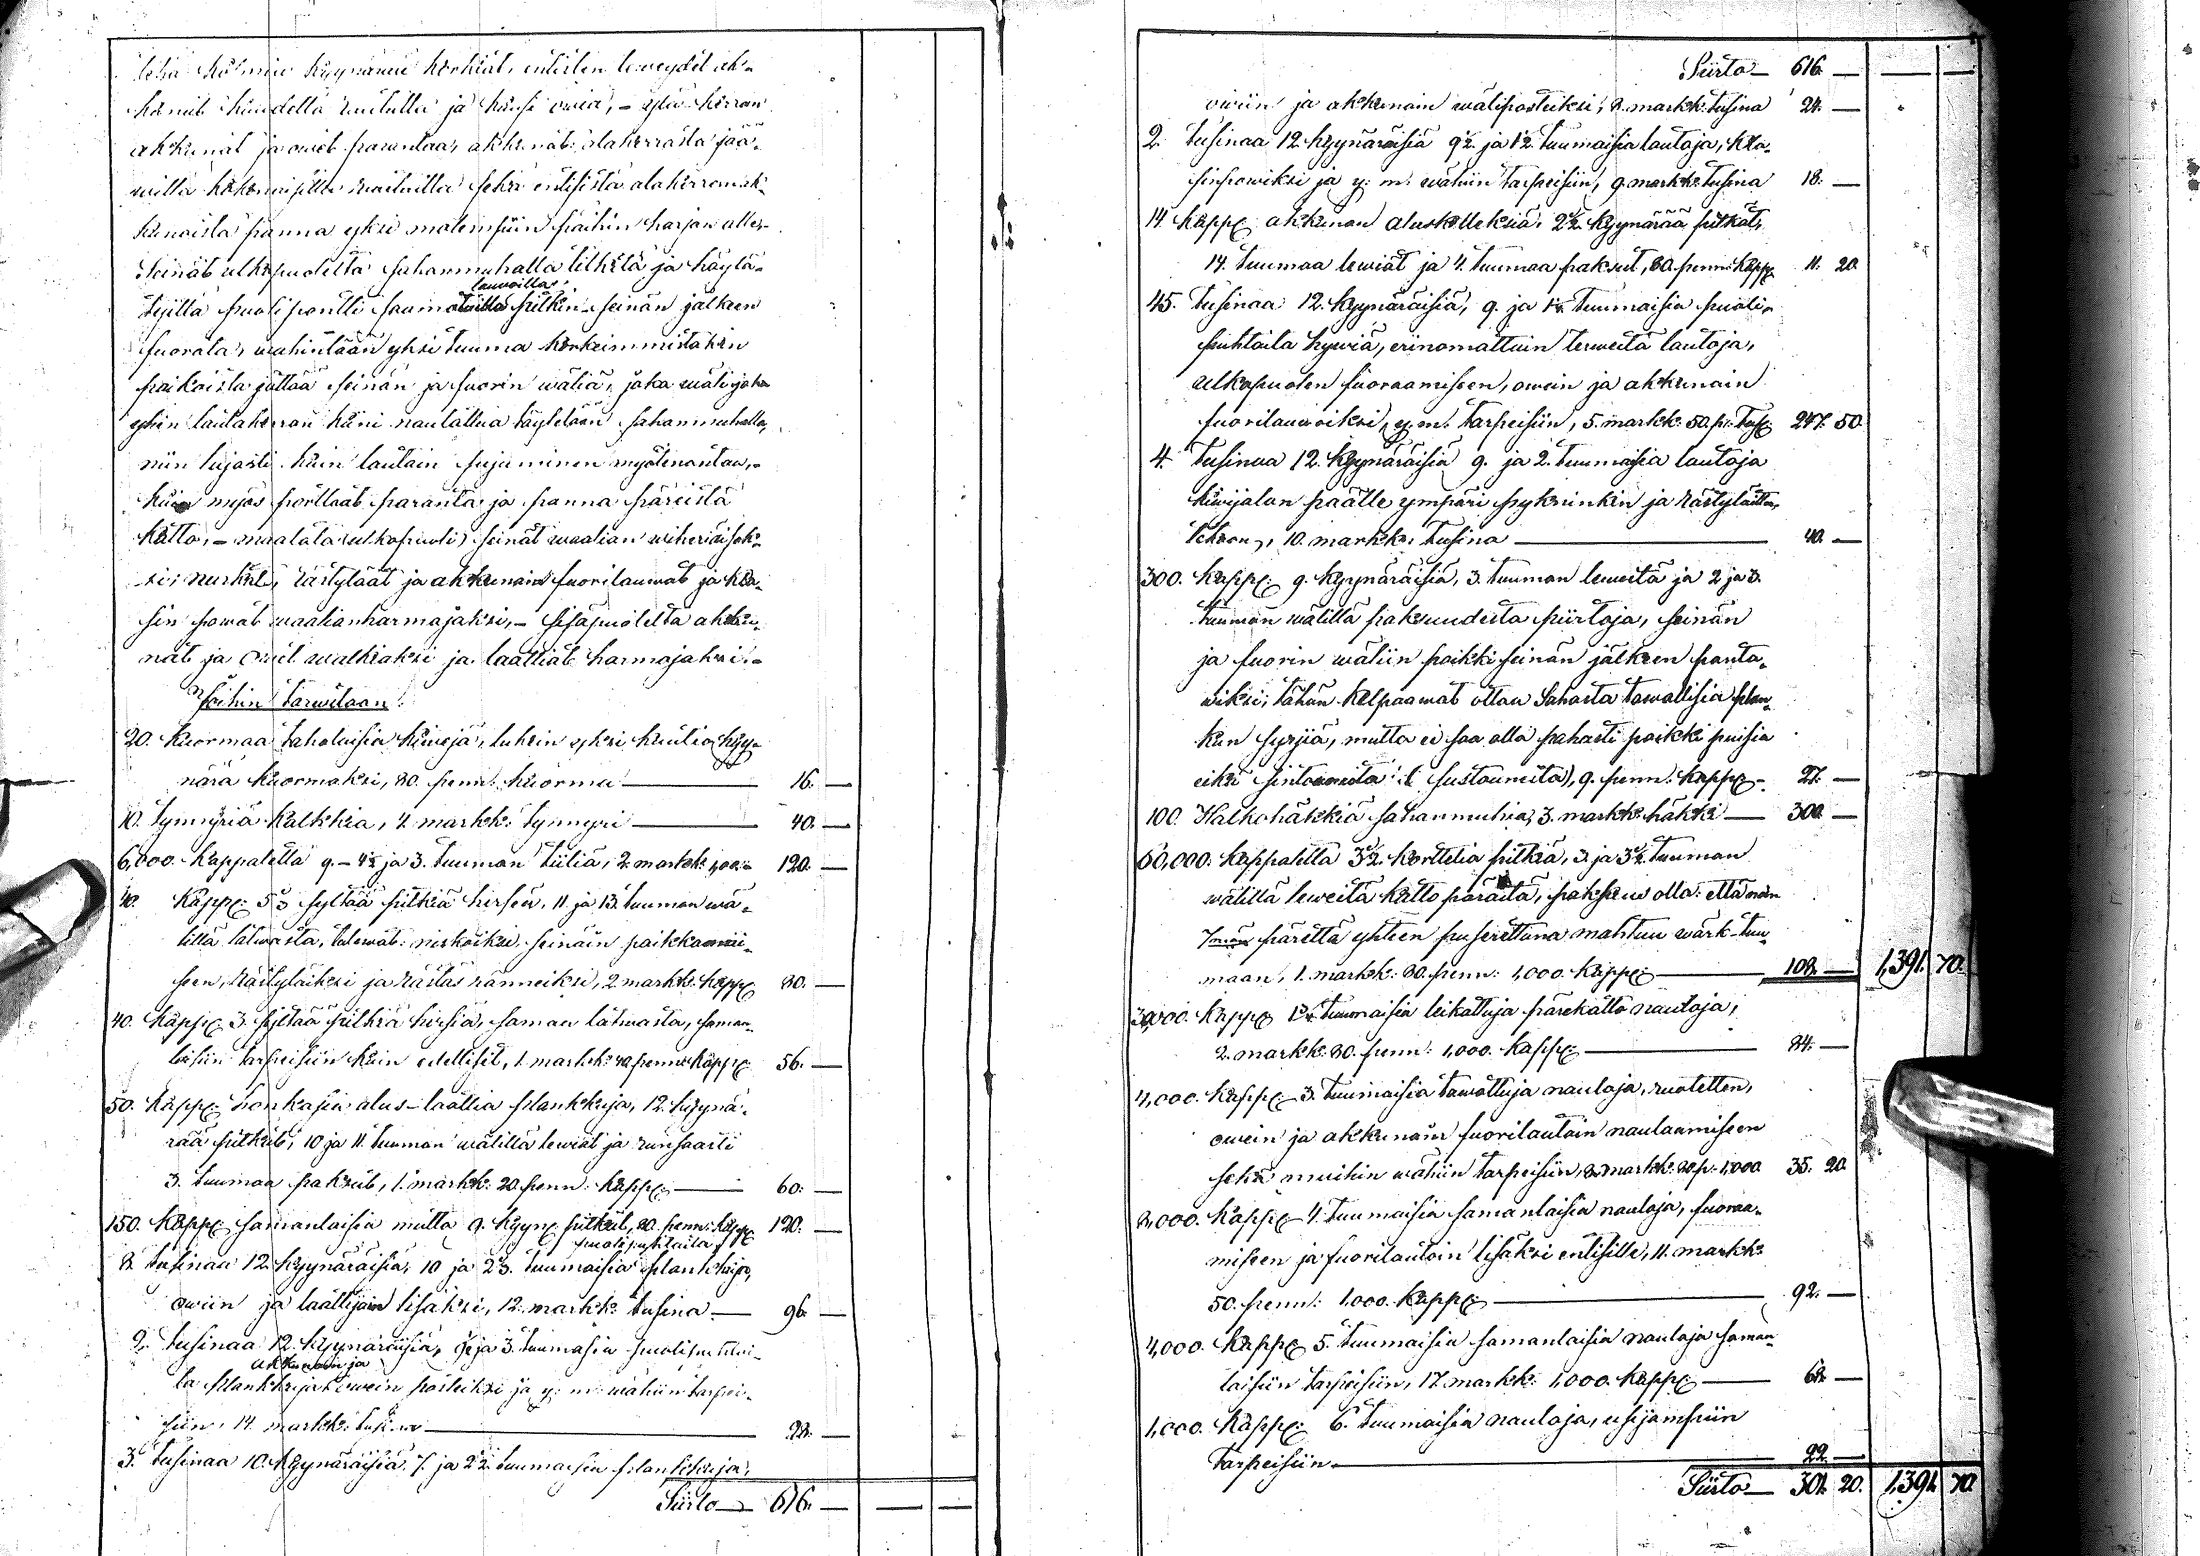 tehä kolmin kyynärän korkiat, entisten leweydet ak-
kunat kuudella ruutulla ja kuusi owia, – ylä kerran
akkunat ja owet parantaa, akkunat alakerrasta jää-
willä kokonaisilla ruutuilla sekä entisistä alakerran ak-
kunoista panna yksi molempiin päihin harjan alle,–
Seinät ulkopuolelta sahanmuhalla tilkitä ja häylä-
lauvoilla
tyillä puoli pontti saumatuilla pitkin seinän jälkeen
fuorata, wähintään yksi tuuma korkeimmistakin
paikoista jättää seinän ja fuorin wäliä, joka wäli joka
yhen lautakerran kiini naulattua täytetään sahanmuhalla,
niin lujasti kuin lautain sujuminen myöten antaa,–
kuin myös porttaat paranta ja panna päreistä
katto, – maalata ulkopuoli, seinät waalian wiheriäisek-
si, nurkat, rästyläät ja akkunain fuorilauwat ja kla-
sin powat waalianharmajaksi, – sisäpuolelta akku-
nat ja owet walkiaksi ja laattiat harmajaksi. –
Töihin tarwitaan:
20. kuormaa laholaisia kiwejä, lukein yksi kuutio kyy-
närä kuormaksi, 80. penni kuorma — 16. —
10. tynnyriä kalkkia, 4. markk: tynnyri — 40. —
6,000. kappaletta 9. – 4½ ja 3. tuuman tiiliä, 2. markk: 100: – 120. —
40. kapp: 5 syltää pitkiä hirsiä, 11. ja 13. tuuman wä-
lillä latwasta, tulewat: niskoiksi seinäin paikkaami-
seen, rästyläiksi ja rästäs ränneiksi, 2 markk: kapp: 80. —
40. kapp: 3. syltää pitkiä hirsiä, saman latwasta, saman-
laisiin tarpeisiin kuin edelliset, 1. markk: 40. penniä kapp: 56. —
50. kapp: honkasia alus-laattia plankkuja, 12. kyynä-
rää pitkät, 10 ja 11. tuuman wälillä lewiät ja runsaasti
3. tuumaa paksut, 1. markk: 20. penn: kapp: — 60. —
150. kapp: samanlaisia mutta 9. kyyn: pitkät, 80. penn: kapp: 120. —
puoli puhtaita
8. tusinaa 12. kyynäräisiä, 10 ja 2⅔. tuumaisia plankkuja,
owiin ja laattijain lisäksi, 12. markk: tusina — 96. —
2. tusinaa 12. kyynäräisiä, 9. ja 3. tuumasia puolipuhtai-
akkunain ja
ta plankkuja owein posteiksi ja y: m: wähiin tarpei-
siin, 14. markk: tusina — 28. —
3. tusinaa 10. kyynäräisiä. 7. ja 2½. tuumaisia plankkuja,
Siirto — 616. — — —
Siirto — 616. — — —
owiin ja akkunain wälipostiksi, 8. markk: tusina 24. —
2. tusinaa 12 kyynäräisiä 9½. ja 1½. tuumaisia lautoja, kla-
sinpowiksi ja y: m: wähiin tarpeisiin, 9. markk: tusina 18. —
14 kapp: akkunan aluskolleksia, 2½. kyynärää pitkät,
14. tuumaa lewiät ja 4. tuumaa paksut, 80. penn: kapp: 11. 20.
45. tusinaa 12. kyynäräisiä, 9. ja 1¼. tuumaisia puoli-
puhtaita hywiä, erinomattain terweitä lautoja,
ulkopuolen fuoraamiseen, owein ja akkunain
fuorilauwoiksi, y: m: tarpeisiin, 5. markk: 50. p: tus: 247. 50.
4. tusinaa 12. kyynäräisiä 9. ja 2. tuumaisia lautoja
kiwijalan päälle ympäri pykninkin ja rästyläitten
tekoon, 10. markka tusina — 40. —
300. kapp: 9. kyynäräisiä, 3. tuuman leweitä ja 2 ja 3.
tuuman wälillä paksuudesta piirtoja, seinän
ja fuorin wäliin paikki seinän jälkeen panta-
wiksi, tähän kelpaawat ottaa Sahasta tawallisia plan-
kun syrjiä, mutta ei saa olla pahasti poikki puisia
eikä sintoumita (: sustoumita), 9. penn: kapp: – 27. —
100. Halkohäkkiä sahanmuhia, 3. markk: häkki — 300 —
60,000. kappaletta 3½. korttelia pitkiä, 3. ja 3½. tuuman
wälillä leweitä kattopäreitä, paksuus olla: että noin
7 pärettä yhteen puserettuna mahtuu wärk-tuu-
maan, 1. markk: 80. penn: 1,000. kapp: — 108. — 1,391. 70.
30,000. kapp: 1¾ tuumaisia leikattuja pärekatto nauloja,
2. markk: 80. penn: 1,000. kapp: — 84. —
4,000. kapp: 3. tuumaisia tawottuja nauloja, ruotetten,
owein ja akkunain fuorilautain naulaamiseen
sekä muihin wähiin tarpeisiin, 8. markk: 80. p: 1,000. 35. 20.
8,000. kapp: 4. tuumaisia samanlaisia nauloja, fuoraa-
miseen ja fuorilautain lisäksi entisille, 11. markk:
50. penn: 1,000. kapp: — 92. —
4,000. kapp: 5. tuumaisia samanlaisia nauloja saman-
laisiin tarpeisiin, 17. markk: 1,000. kapp: — 68. —
1,000. kapp: 6. tuumaisia nauloja, usijampiin
tarpeisiin — 22. —
Siirto — 301. 20. 1,391. 70.